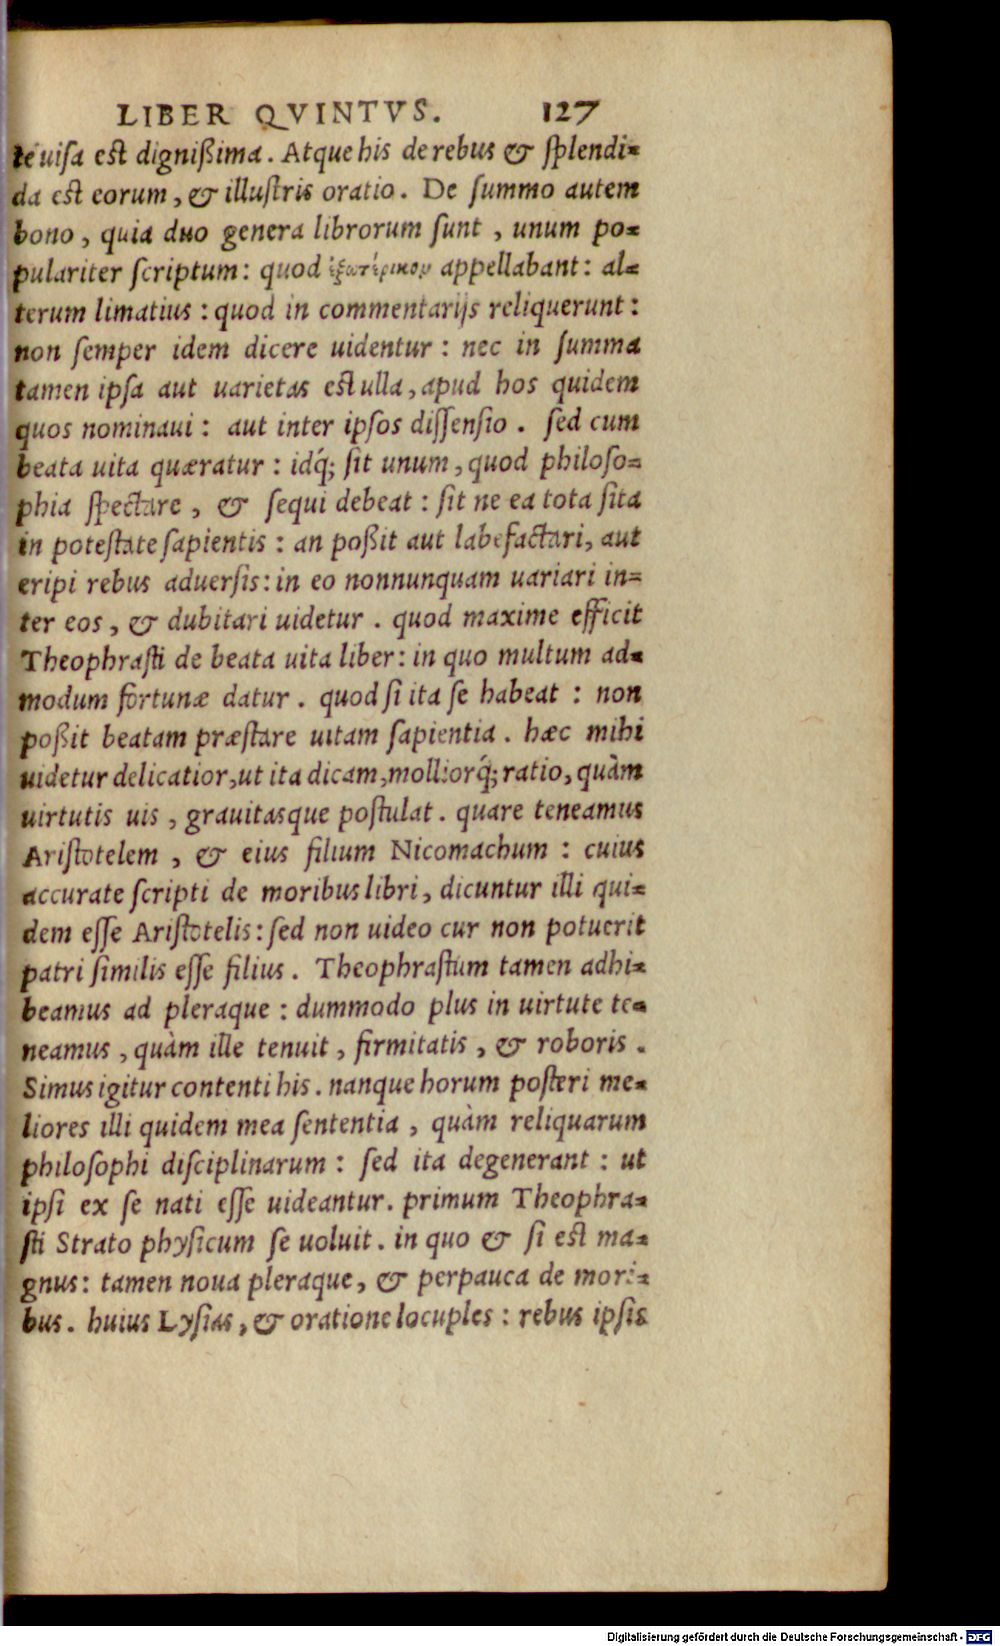 LIBER QVINTVS. 127
te uisa est dignißima. Atque his de rebus & splendi-
da est eorum, & illustris oratio. De summo autem
bono, quia duo genera librorum sunt, unum po-
pulariter scriptum: quod ἐξωτέρικον appellabant: al-
terum limatius: quod in commentarijs reliquerunt:
non semper idem dicere uidentur: nec in summa
tamen ipsa aut uarietas est ulla, apud hos quidem
quos nominaui: aut inter ipsos dissensio. sed cum
beata uita quæratur: idq́; sit unum, quod philoso-
phia spectare, & sequi debeat: sit ne ea tota sita
in potestate sapientis: an poßit aut labefactari, aut
eripi rebus aduersis: in eo nonnunquam uariari in-
ter eos, & dubitari uidetur. quod maxime efficit
Theophrasti de beata uita liber: in quo multum ad-
modum fortunæ datur. quod si ita se habeat: non
poßit beatam præstare uitam sapientia. hæc mihi
uidetur delicatior, ut ita dicam, molliorq́; ratio, quàm
uirtutis uis, grauitasque postulat. quare teneamus
Aristotelem, & eius filium Nicomachum: cuius
accurate scripti de moribus libri, dicuntur illi qui-
dem esse Aristotelis: sed non uideo cur non potuerit
patri similis esse filius. Theophrastum tamen adhi-
beamus ad pleraque: dummodo plus in uirtute te-
neamus, quàm ille tenuit, firmitatis, & roboris.
Simus igitur contenti his. nanque horum posteri me-
liores illi quidem mea sententia, quàm reliquarum
philosophi disciplinarum: sed ita degenerant: ut
ipsi ex se nati esse uideantur. primum Theophra-
sti Strato physicum se uoluit. in quo & si est ma-
gnus: tamen noua pleraque, & perpauca de mori-
bus. huius Lysias, & oratione locuples: rebus ipsis
Digitalisierung gefördert durch die Deutsche Forschungsgemeinschaft - DFG